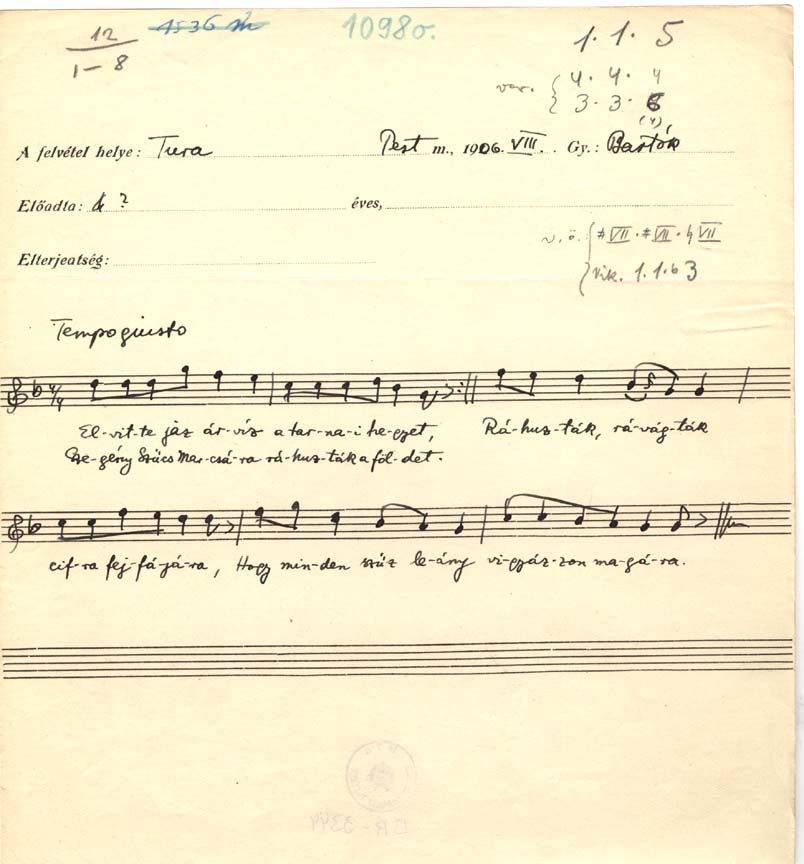 12
1–8
1536
10980.
1. 1. 5
var. { 4. 4. 4
3. 3. 6
(4)
A felvétel helye: Tura Pest m., 1906. VIII. Gy.: Bartók
Előadta: ? éves,
v. ö. { #VII . #VII . ♮VII
Elterjeatség:
Vik. 1. 1. b3
Tempo giusto
4/4
El-vit-te jaz ár-víz a tar-na-i he-gyet, Rá-huz-ták, rá-vág-ták
Sze-gény Szűcs Mar-csá-ra rá-huz-ták a föl-det.
cif-ra fej-fá-já-ra, Hogy min-den szűz le-ány vi-gyáz-zon ma-gá-ra.
BR-3344